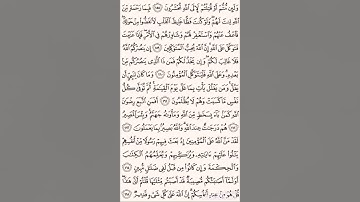 وَلَئِن مُّتُّمْ أَوْ قُتِلْتُمْ لَإِلَى ٱللَّهِ تُحْشَرُونَ ١٥٨ فَبِمَا رَحْمَةٍ مِّنَ
ٱللَّهِ لِنتَ لَهُمْ وَلَوْ كُنتَ فَظًّا غَلِيظَ ٱلْقَلْبِ لَٱنفَضُّوا۟ مِنْ حَوْلِكَ
فَٱعْفُ عَنْهُمْ وَٱسْتَغْفِرْ لَهُمْ وَشَاوِرْهُمْ فِى ٱلْأَمْرِ فَإِذَا عَزَمْتَ
فَتَوَكَّلْ عَلَى ٱللَّهِ إِنَّ ٱللَّهَ يُحِبُّ ٱلْمُتَوَكِّلِينَ ١٥٩ إِن يَنصُرْكُمُ ٱللَّهُ
فَلَا غَالِبَ لَكُمْ وَإِن يَخْذُلْكُمْ فَمَن ذَا ٱلَّذِى يَنصُرُكُم
مِّنۢ بَعْدِهِۦ وَعَلَى ٱللَّهِ فَلْيَتَوَكَّلِ ٱلْمُؤْمِنُونَ ١٦٠ وَمَا كَانَ لِنَبِىٍّ أَن
يَغُلَّ وَمَن يَغْلُلْ يَأْتِ بِمَا غَلَّ يَوْمَ ٱلْقِيَٰمَةِ ثُمَّ تُوَفَّىٰ كُلُّ
نَفْسٍ مَّا كَسَبَتْ وَهُمْ لَا يُظْلَمُونَ ١٦١ أَفَمَنِ ٱتَّبَعَ رِضْوَٰنَ
ٱللَّهِ كَمَنۢ بَآءَ بِسَخَطٍ مِّنَ ٱللَّهِ وَمَأْوَىٰهُ جَهَنَّمُ وَبِئْسَ ٱلْمَصِيرُ
١٦٢ هُمْ دَرَجَٰتٌ عِندَ ٱللَّهِ وَٱللَّهُ بَصِيرٌۢ بِمَا يَعْمَلُونَ
١٦٣ لَقَدْ مَنَّ ٱللَّهُ عَلَى ٱلْمُؤْمِنِينَ إِذْ بَعَثَ فِيهِمْ رَسُولًا مِّنْ أَنفُسِهِمْ
يَتْلُوا۟ عَلَيْهِمْ ءَايَٰتِهِۦ وَيُزَكِّيهِمْ وَيُعَلِّمُهُمُ ٱلْكِتَٰبَ
وَٱلْحِكْمَةَ وَإِن كَانُوا۟ مِن قَبْلُ لَفِى ضَلَٰلٍ مُّبِينٍ ١٦٤
أَوَلَمَّآ أَصَٰبَتْكُم مُّصِيبَةٌ قَدْ أَصَبْتُم مِّثْلَيْهَا قُلْتُمْ أَنَّىٰ هَٰذَا
قُلْ هُوَ مِنْ عِندِ أَنفُسِكُمْ إِنَّ ٱللَّهَ عَلَىٰ كُلِّ شَىْءٍ قَدِيرٌ ١٦٥